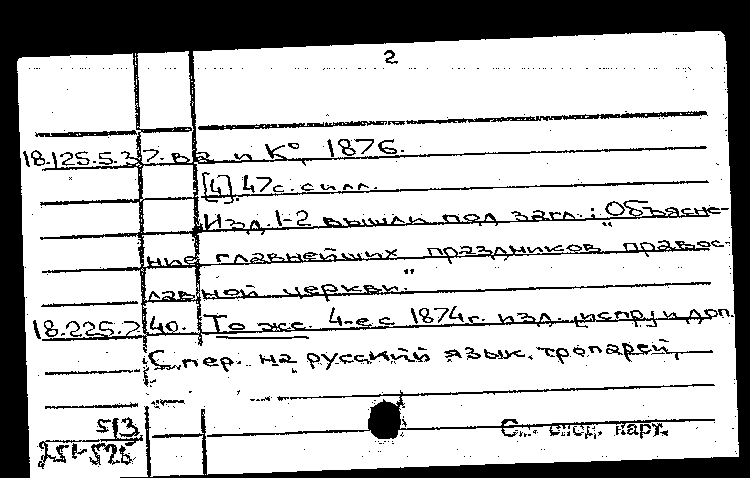 2
18.125.5.37. ва и К°, 1876.
[4] 47с. с илл.
Изд. 1-2 вышли под загл.: Объясне-
ние главнейших праздников "правос-
лавной церкви."
18.225.2.40. То же. 4-е с 1874г. изд. испр. и доп.
С пер. на русский язык. тропарей,
513
См. след. карт.